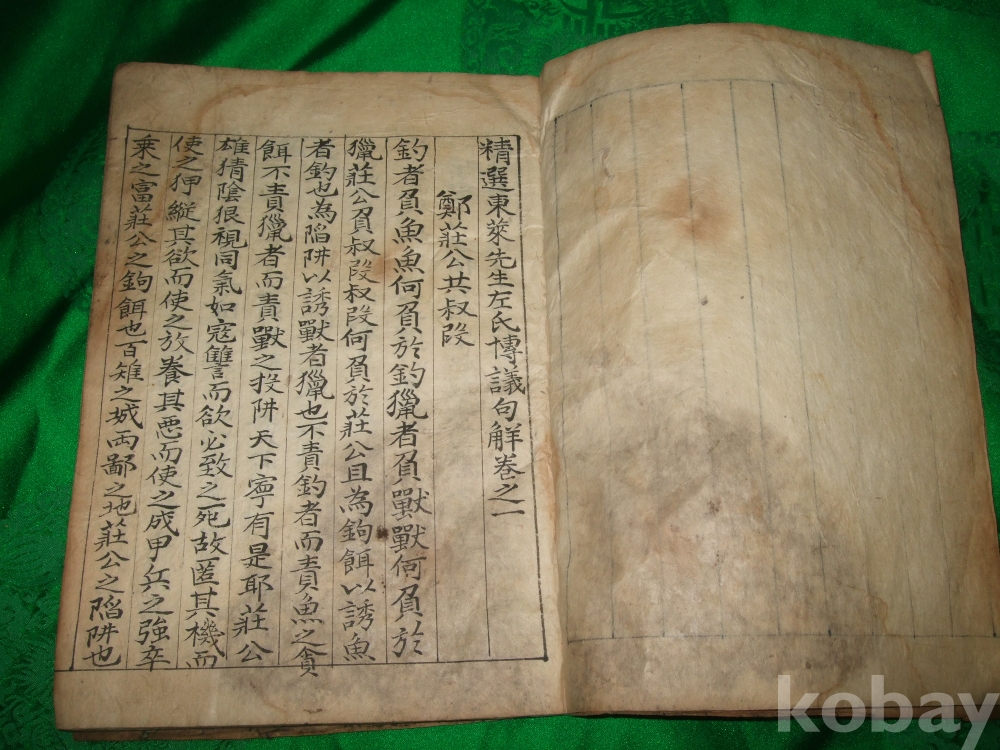 精選東萊先生左氏博議句解卷之一
鄭莊公共叔段
釣者負魚魚何負於釣獵者負獸獸何負於
獵莊公負叔段叔段何負於莊公且為鉤餌以誘魚
者釣也為陷阱以誘獸者獵也不責釣者而責魚之貪
餌不責獵者而責獸之投阱天下寧有是耶莊公
雄猜陰狠視同氣如寇讐而欲必致之死故匿其機而
使之狎縱其欲而使之放養其悪而使之成甲兵之強卒
乗之富莊公之鉤餌也百雉之城両鄙之地莊公之陷阱也
kobay